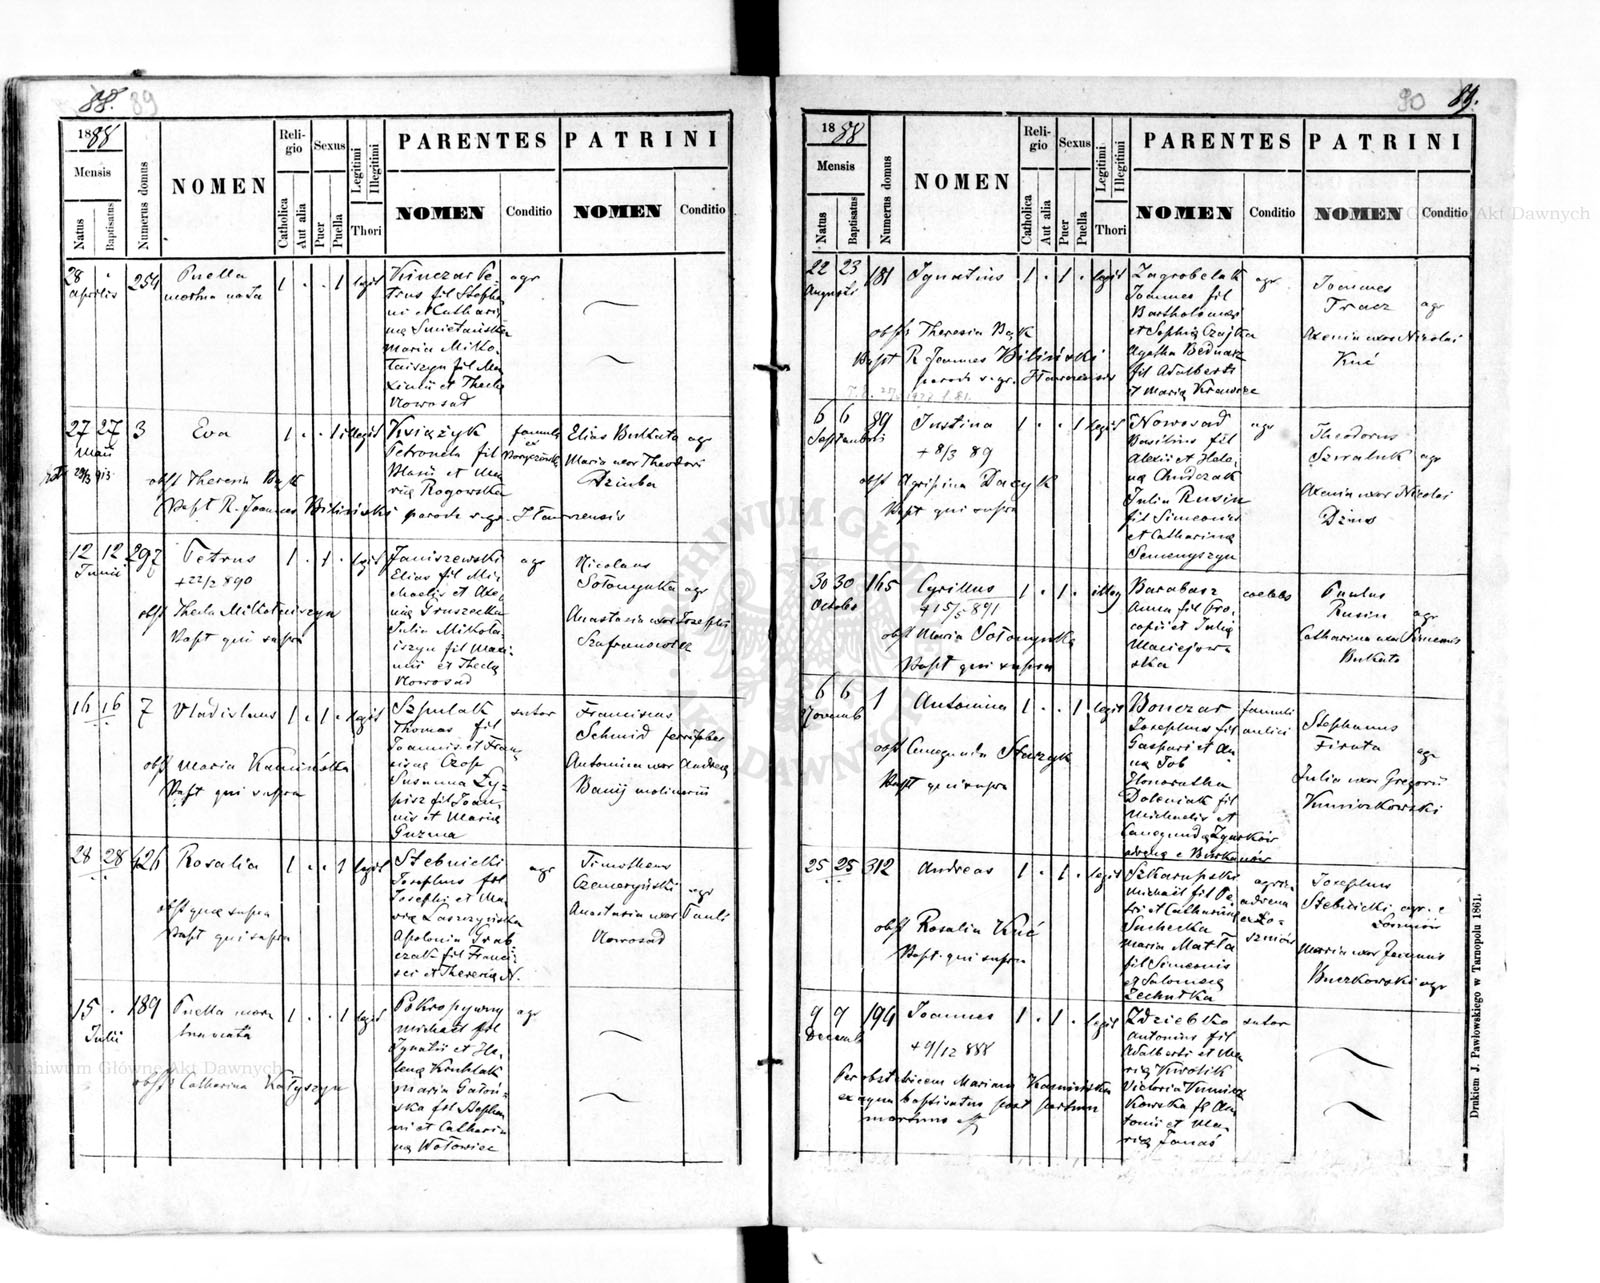 88. 89
1888
Mensis
Natus
Baptisatus
Numerus domus
NOMEN
Reli-
gio
Catholica
Aut alia
Sexus
Puer
Puella
Legitimi
Illegitimi
Thori
PARENTES
NOMEN
Conditio
PATRINI
NOMEN
Conditio
28
Aprilis
254
Puella
mortua nata
1 . . 1 legit
Kinczar Pe-
trus fil Stepha-
ni et Cathari-
na
Maria Miko-
laiszyn fil Ma-
ximi et Thecla
Nowosad
agr
27 27
Maii
3
Eva
1 . . 1 illegit
obst Theresia Bąk
Bapt R. Joannes Biliński paroch r. gr.
Książyk
Petronela fil
et Ma-
ria Rogowska
famula
Elias Bukata agr
Maria uxor Theodori
Dziuba
12 12
Junii
297
Petrus
+ 22/2 890
1 . 1 . legit
obst Thecla Mikołaiszyn
Bapt qui supra
Janiszewski
Elias fil Mi-
chaelis et
Gruszecka
Julia Mikoła-
iszyn fil Maxi-
mi et Thecla
Nowosad
agr
Nicolaus
Sołonynka agr
Anastasia uxor Josephi
Szafranowicz
16 16
7
Vladislaus
1 . 1 . legit
obst Maria Kamińska
Bapt qui supra
Szpulak
Thomas fil
Joannis et Fran-
cisca Czop
Susanna Ły-
fil Joan-
nis et Maria
Guzma
sutor
Franciscus
Schmid
Antonina uxor Andreae
Banij molinarii
28 28
426
Rosalia
1 . . 1 legit
obst quae supra
Bapt qui supra
Stebnicki
Josephus fil
Josephi et Ma-
ria Laszczyńska
Apolonia Grab-
czak fil Franci-
sci et Theresia N.
agr
Timotheus
Czemeryński agr
Anastasia uxor Pauli
Nowosad
15 .
Julii
189
Puella mor-
tua nata
1 . . 1 legit
obst Catharina Kałyszyn
Pokropywny
Michael fil
Ignatii et He-
lena Kruhlak
Maria Gatoń-
ska fil Stepha-
ni et Cathari-
na Wołowiec
agr
90 89.
1888
Mensis
Natus
Baptisatus
Numerus domus
NOMEN
Reli-
gio
Catholica
Aut alia
Sexus
Puer
Puella
Legitimi
Illegitimi
Thori
PARENTES
NOMEN
Conditio
PATRINI
NOMEN
Conditio
22 23
Augusti
181
Ignatius
1 . 1 . legit
obst Theresia Bąk
Bapt R. Joannes Biliński
paroch r. gr.
Zagrobelak
Joannes fil
Bartholomaei
et Sophia Czajka
Agatha Bednarz
fil Adalberti
et Maria Krawiec
agr
Joannes
Tracz agr
Axenia uxor Nicolai
Kuć
6 6
Septembri
89
Justina
+ 8/3 89
1 . . 1 legit
obst Agripina Dacyk
Bapt qui supra
Nowosad
Basilius fil
Alexii et Hele-
na Chudczak
Julia Rusin
fil Simeonis
et Catharina
Semenyszyn
agr
Theodorus
Szwaluk agr
Axenia uxor Nicolai
Dzius
30 30
Octobr
165
Cyrillus
+ 15/5 891
1 . 1 . illeg
obst Maria Sołonynka
Bapt qui supra
Barabasz
Anna fil Pro-
copii et Julia
Maciejow-
ska
coelebs
Paulus
Rusin agr
Catharina uxor Simeonis
Bukata
6 6
Novemb
1
Antonina
1 . . 1 legit
obst Cunegunda Starzyk
Bapt qui supra
Bonczar
Josephus fil
Gaspari et An-
na Job
Honoratha
Doleniak fil
Michaelis et
Cunegunda
famuli
aulici
Stephanus
Firuta agr
Julia uxor Gregorii
Kumiszkowski
25 25
312
Andreas
1 . 1 . legit
obst Rosalia Kuć
Bapt. qui supra
Szkarupski
Michael fil Pe-
tri et Catharina
Suchecka
Maria Matła
fil Simeonis
et Salomea
Zechutka
Josephus
Stebnicki agr.
Maria uxor Joannis
Buczkowski agr
9 9
Decemb
194
Joannes
+ 9/12 888
1 . 1 . legit
Per obstetricem Mariam Kamińska
ex aqua baptisatus post partum
mortuus est
Zdziebko
Antonius fil
Adalberti et Ma-
ria Królik
Victoria Kumisz-
kowska fil An-
tonii et Ma-
ria Janas
sutor
Drukiem J. Pawłowskiego w Tarnopolu 1861.
ARCHIWUM GŁÓWNE AKT DAWNYCH
Archiwum Główne Akt Dawnych
Archiwum Główne Akt Dawnych